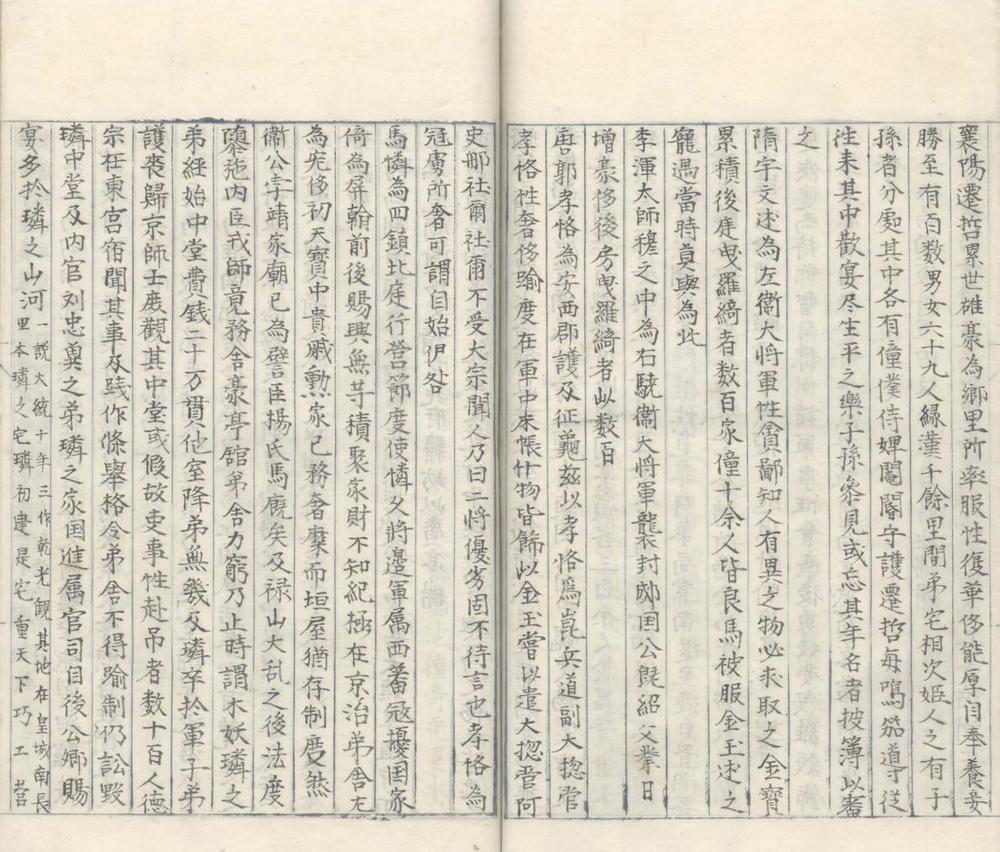 襄陽遷哲累世雄豪為鄉里所率服性復華侈能厚自奉養妾
勝至有百数男女六十九人緣漢千餘里間弟宅相次姬人之有子
孫者分処其中各有僮僕侍婢閽閽守護遷哲每鳴笳導従
往来其中歡宴尽生平之樂子孫叅見或忘其年名者披簿以審
之
隋宇文述為左衞大将軍性貪鄙知人有異之物必求取之金寶
累積後庭曳羅綺者数百家僮十余人皆良馬被服金玉述之
寵遇當時莫與為此
李渾太師穆之中為右驍衞大将軍襲封郕国公既紹父業日
增豪侈後房曳羅綺者以数百
唐郭孝恪為安西郡護及征龜玆以孝恪爲崑兵道副大揔官
孝恪性奢侈踰度在軍中床帳什物皆飾以金玉嘗以遣大揔管阿
史那社爾社爾不受大宗聞人乃曰二将優劣固不待言也孝恪為
冠虜所奢可謂自始伊咎
馬憐為四鎮北庭行営節度使憐久将邊軍属西蕃寇擾国家
倚為屏翰前後賜與無芋積聚家財不知紀極在京治弟舎尤
為宏侈初天寶中貴戚勳家已務奢糜而垣屋猶存制度然
衞公李靖家廟已為嬖臣楊氏馬廐矣及禄山大乱之後法度
隳弛内臣戎師竟務舎豪亭舘弟舎力窮乃止時謂木妖璘之
弟経始中堂費銭二十万貫他室降弟無幾及璘卒扵軍子弟
護喪歸京師士庻觀其中堂或假故吏事性赴吊者数十百人德
宗在東宮宿聞其事及践作條舉格令弟舎不得踰制仍訟毀
璘中堂及内官刘忠翼之弟璘之家国進属官司自後公卿賜
宴多扵璘之山河一説大統十年三作乾光観其地在皇城南長
里本璘之宅璘初建是宅重天下巧工営